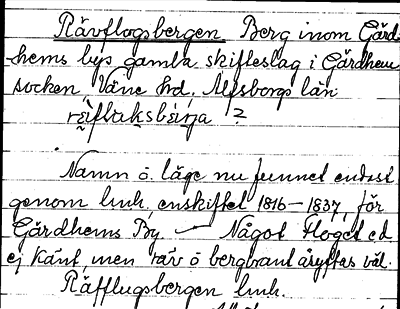 Rävflogsbergen. Berg inom Gärd-
hems bys gamla skifteslag i Gärdhem
socken Väne hd. Älfsborgs län
?
Namn o. läge nu funnet endast
genom lmh. enskiftet 1816–1837, för
Gärdhems By — Något Floget ed
ej känt, men räv o bergbrant åsyftas väl.
Räfflugsbergen lmh.